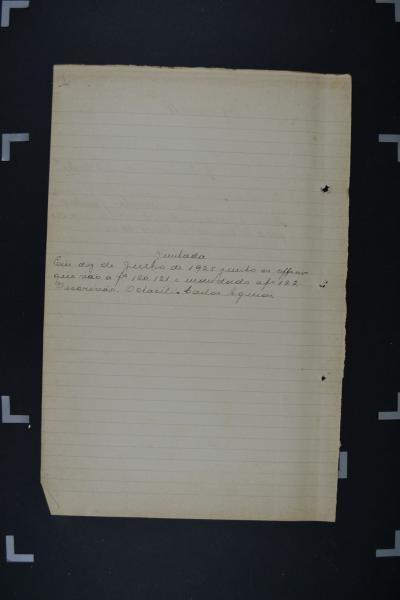 Juntada
Em dez de Junho de 1925 junto os officios
que vão a fs 120, 121 e mandado a fs 122
Escrivão. Octacilio Carlos